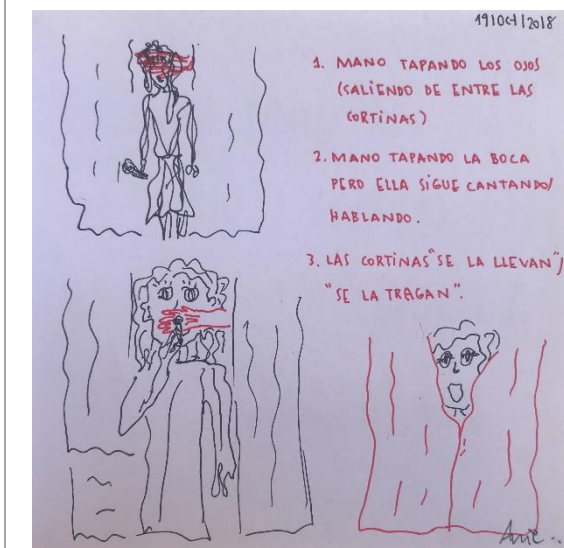 19/Oct/2018
1. MANO TAPANDO LOS OJOS
(SALiENDO DE ENTRE LAS
CORTiNAS)
2. MANO TAPANDO LA BOCA
PERO ELLA SiGUE CANTANDO/
HABLANDO.
3. LAS CORTiNAS "SE LA LLEVAN"/
"SE LA TRAGAN".